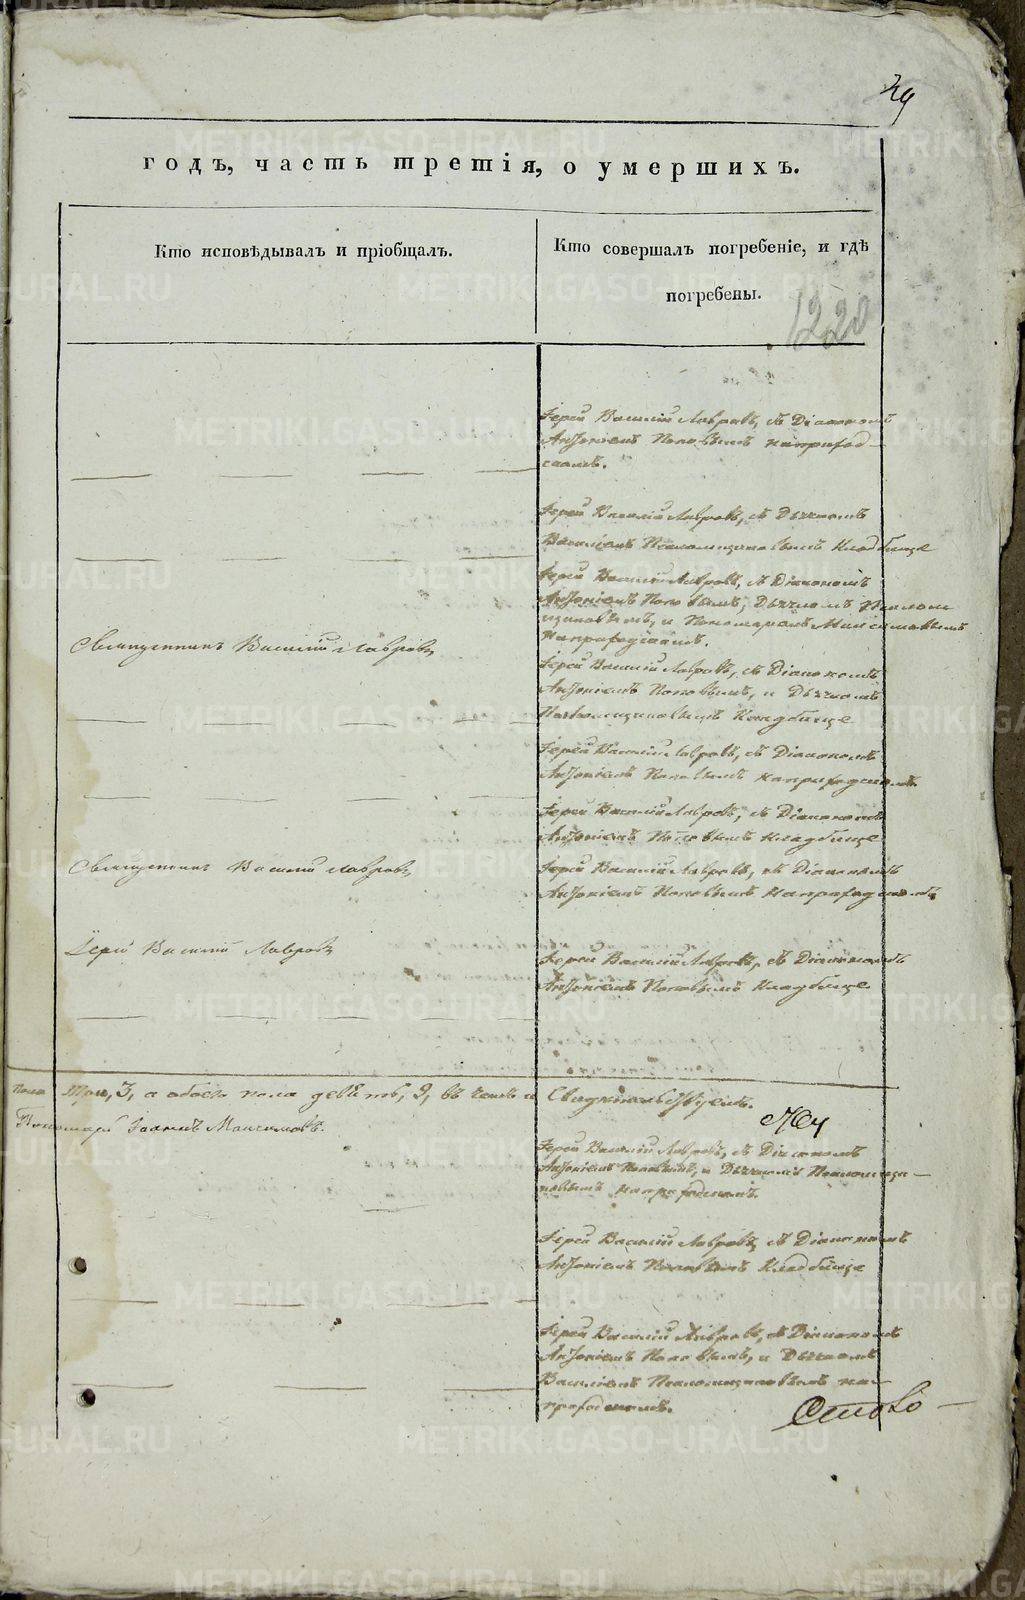 годъ, часть третія, о умершихъ.
Кто исповѣдывалъ и пріобщалъ.
Кто совершалъ погребеніе, и гдѣ
погребены.
1220
Іерей Василій Лавровъ, съ Діакономъ
Антоніемъ Поповымъ на приход-
скомъ.
Іерей Василій Лавровъ, съ Дьячкомъ
Василіемъ кладбище
Іерей Василій Лавровъ, съ Діакономъ
Антоніемъ Поповымъ, Дьячкомъ
и Пономаремъ Максимовымъ
на приходскомъ.
Священникъ Василій Лавровъ
Іерей Василій Лавровъ, съ Діакономъ
Антоніемъ Поповымъ, и Дьячкомъ
кладбище
Іерей Василій Лавровъ, съ Діакономъ
Антоніемъ Поповымъ на приходскомъ.
Іерей Василій Лавровъ, съ Діакономъ
Антоніемъ Поповымъ кладбище
Священникъ Василій Лавровъ
Іерей Василій Лавровъ, съ Діакономъ
Антоніемъ Поповымъ на приходскомъ
Іерей Василій Лавровъ
Іерей Василій Лавровъ, съ Діакономъ
Антоніемъ Поповымъ кладбище
пола три, 3, а обоего пола девять, 9, въ чемъ и Свидѣтельствуемъ.
Пономарь Іоаннъ Максимовъ.
Іерей Василій Лавровъ, съ Діакономъ
Антоніемъ Поповымъ, и Дьячкомъ
на приходскомъ.
Іерей Василій Лавровъ, съ Діакономъ
Антоніемъ Поповымъ кладбище
Іерей Василій Лавровъ, съ Діакономъ
Антоніемъ Поповымъ, и Дьячкомъ
Василіемъ на
приходскомъ.
METRIKI.GASO-URAL.RU